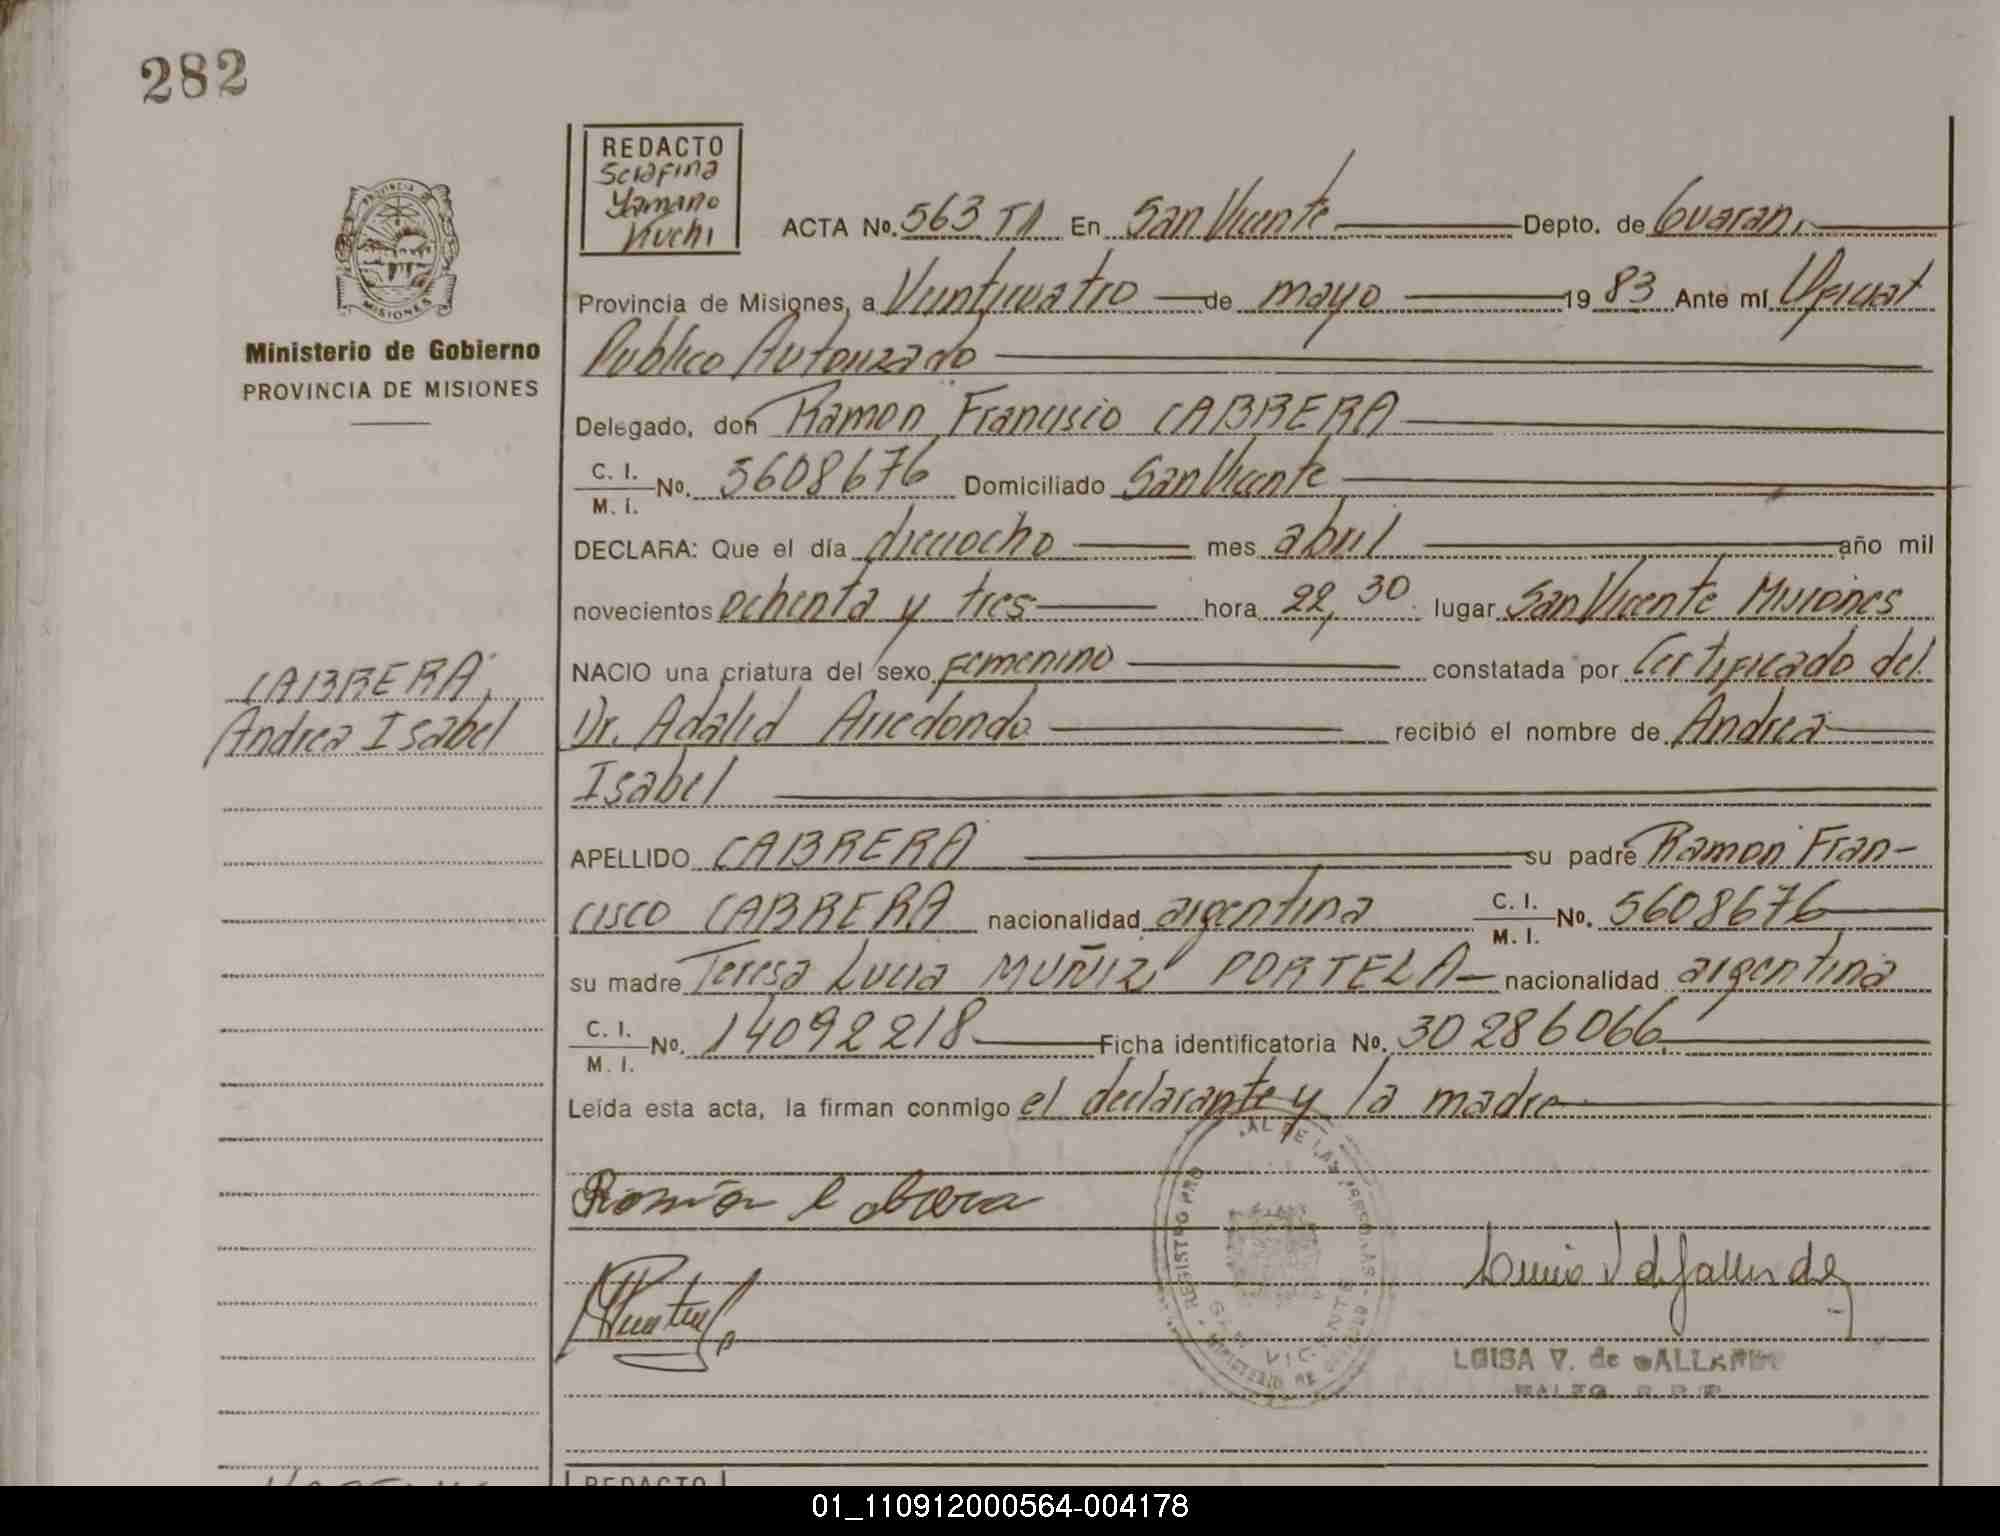 282
REDACTO
Serafina
Yamano
Kuchi
PROVINCIA DE
MISIONES
Ministerio de Gobierno
PROVINCIA DE MISIONES
ACTA No. 563 TI En San Vicente Depto. de Guaraní
Provincia de Misiones, a Veinticuatro de mayo 19 83 Ante mí Oficial
Publico Autorizado
Delegado, don Ramon Francisco CABRERA
C. I.
M. I. No. 5608676 Domiciliado San Vicente
DECLARA: Que el día dieciocho mes abril año mil
novecientos ochenta y tres hora 22,30 lugar San Vicente Misiones
NACIO una criatura del sexo femenino constatada por Certificado del
Dr. Adalid Arredondo recibió el nombre de Andrea
Isabel
CABRERA,
Andrea Isabel
APELLIDO CABRERA su padre Ramon Fran-
cisco CABRERA nacionalidad argentina C. I.
M. I. No. 5608676
su madre Teresa Lucia MUÑIZ PORTELA nacionalidad argentina
C. I.
M. I. No. 14092218 Ficha identificatoria No. 30286066
Leída esta acta, la firman conmigo el declarante y la madre
Ramón Cabrera
REGISTRO PRO AL DE LAS PERSONAS
MINISTERIO DE GOBIERNO
SAN VICENTE
LUISA V. de GALLARDO
REDACTO
01_110912000564-004178